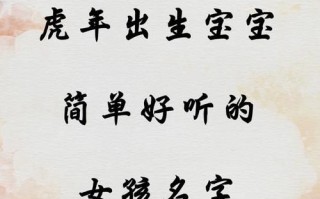 虎年出生宝宝
简单好听的
女孩名字